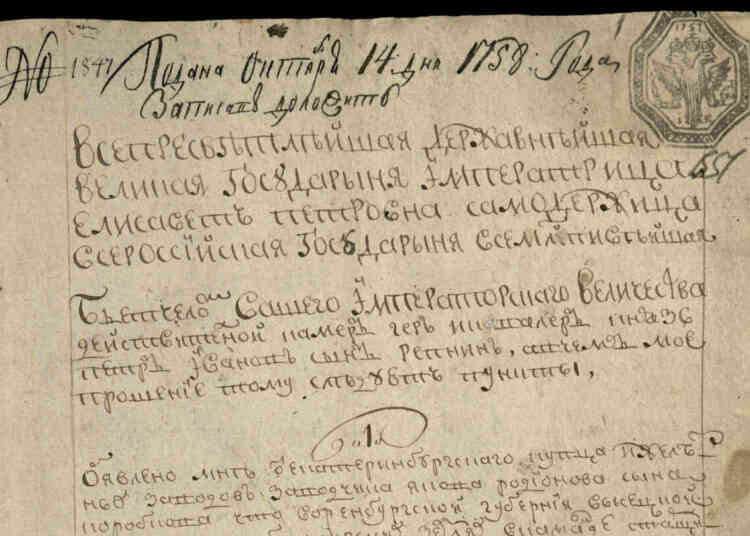 № 1847 Подана октябрѧ 14 дня 1758: Года
Записавъ доложить
1757
651
Всепресвѣтлѣйшая Державнѣйшая
великая Государыня Імператрица
Елисаветъ Петровна самодержица
Всероссійская Государыня всемлтивѣйшая
Бьетчелом Вашего Імператорскаго величества
действителной камеръ геръ и ковалеръ кнзь
петръ Івановъ сынъ репнинъ, а о чемъ мое
прошенїе тому слѣдуютъ пункты,
"1"
Обявлено мнѣ Екатеринбургскаго купца и желѣ
ныхъ заводовъ заводчика якова родионова сына
коробкова что воренбургской губернїи